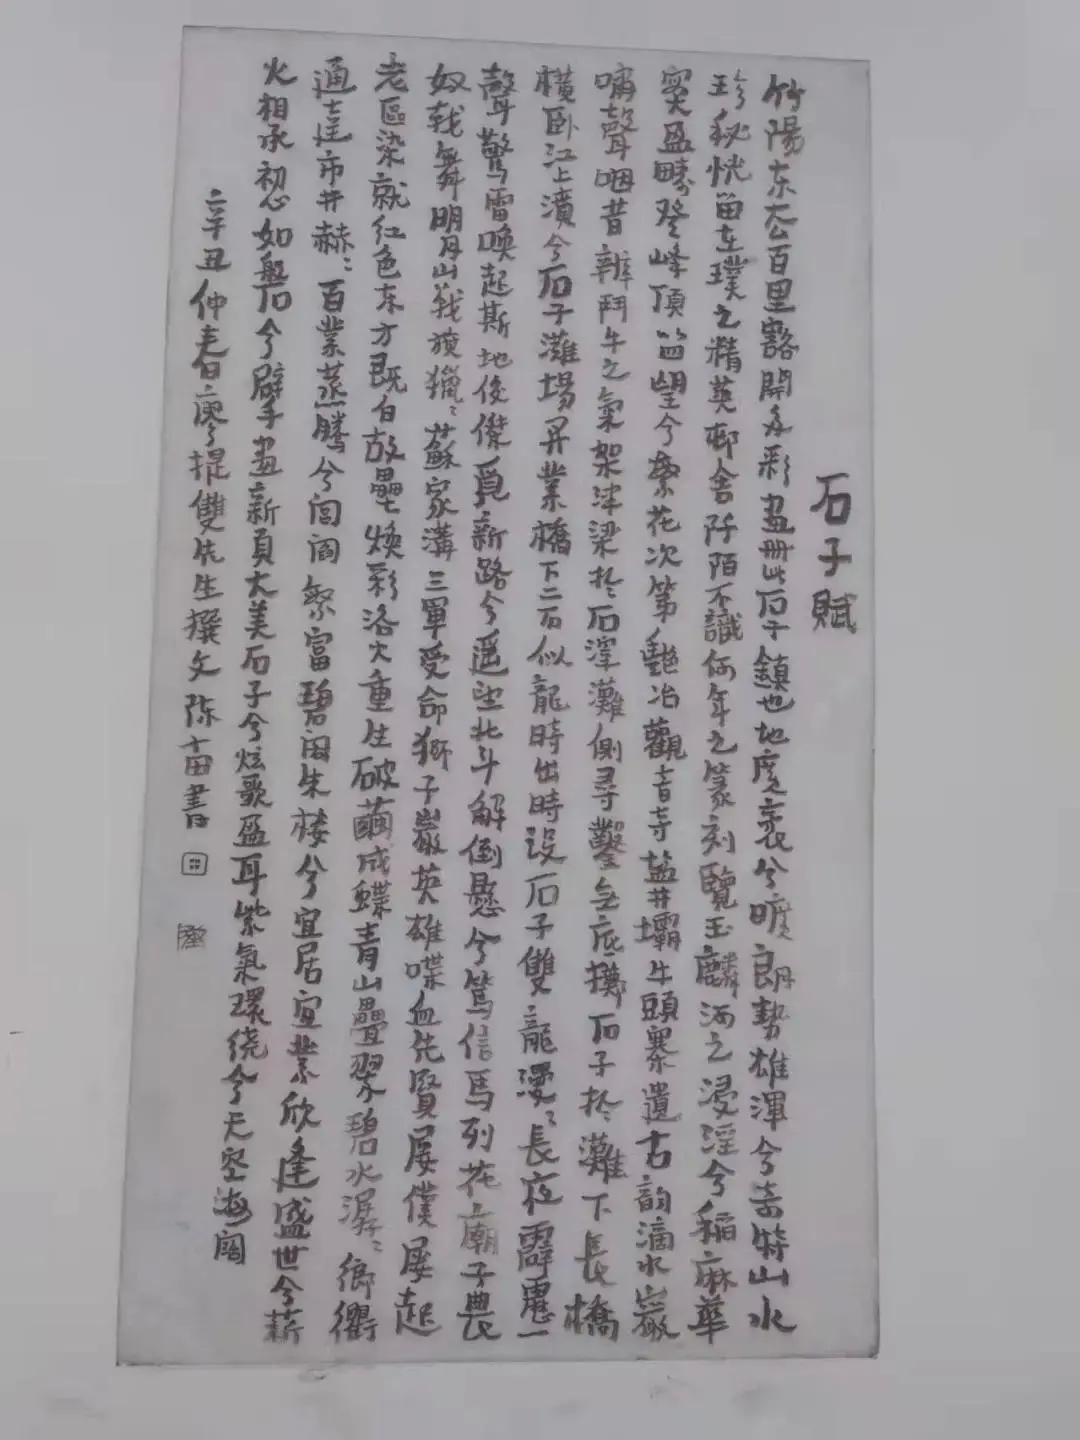 石子賦
竹陽东去百里豁開多彩畫册此石子鎮也地廣袤兮曠朗勢雄渾兮奇特山水
珍秘恍留在璞之精英邨舍阡陌不識何年之篆刻覽玉麟河之浸淫兮稻麻華
實盈疇登峰頂四望兮繁花次第艷冶觀音寺盐井壩牛頭寨遺古韵滴水巖
嘯聲咽昔辨鬥牛之氣架津梁於石滓灘側尋鑿無底擲石子於灘下長橋
橫卧江上濆兮石子灘場昇業橋下二石似龍時出時没石子雙龍漫漫長夜霹靂一
聲驚雷喚起斯地俊傑覓新路兮遥望北斗解倒懸兮篤信馬列花廟子農
奴戟舞明月山義旗獵獵蘇家溝三軍受命獅子巖英雄喋血先賢屢僕屢起
老區染就紅色东方既白故壘焕彩浴火重生破繭成蝶青山疊翠碧水潺潺鄉衢
通達市井赫赫百業蒸騰兮閭阎繁富碧阁朱楼兮宜居宜業欣逢盛世兮薪
火相承初心如磐石兮擘画新頁大美石子兮炫歌盈耳紫氣環绕兮天空海闊
辛丑仲春廖提雙先生撰文陈苗書